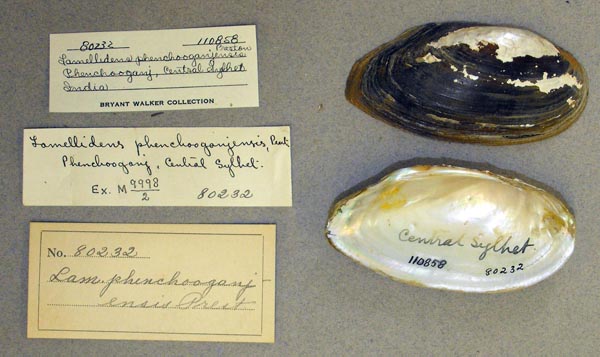 80232 110858
Lamellidens phenchooganjensis Preston
Phenchooganj, Central Sylhet
India
BRYANT WALKER COLLECTION
Lamellidens phenchooganjensis, Prest.
Phenchooganj, Central Sylhet.
Ex. M 9998/2 80232
No. 80232
Lam. phenchooganj-
ensis Prest
Central Sylhet.
110858 80232